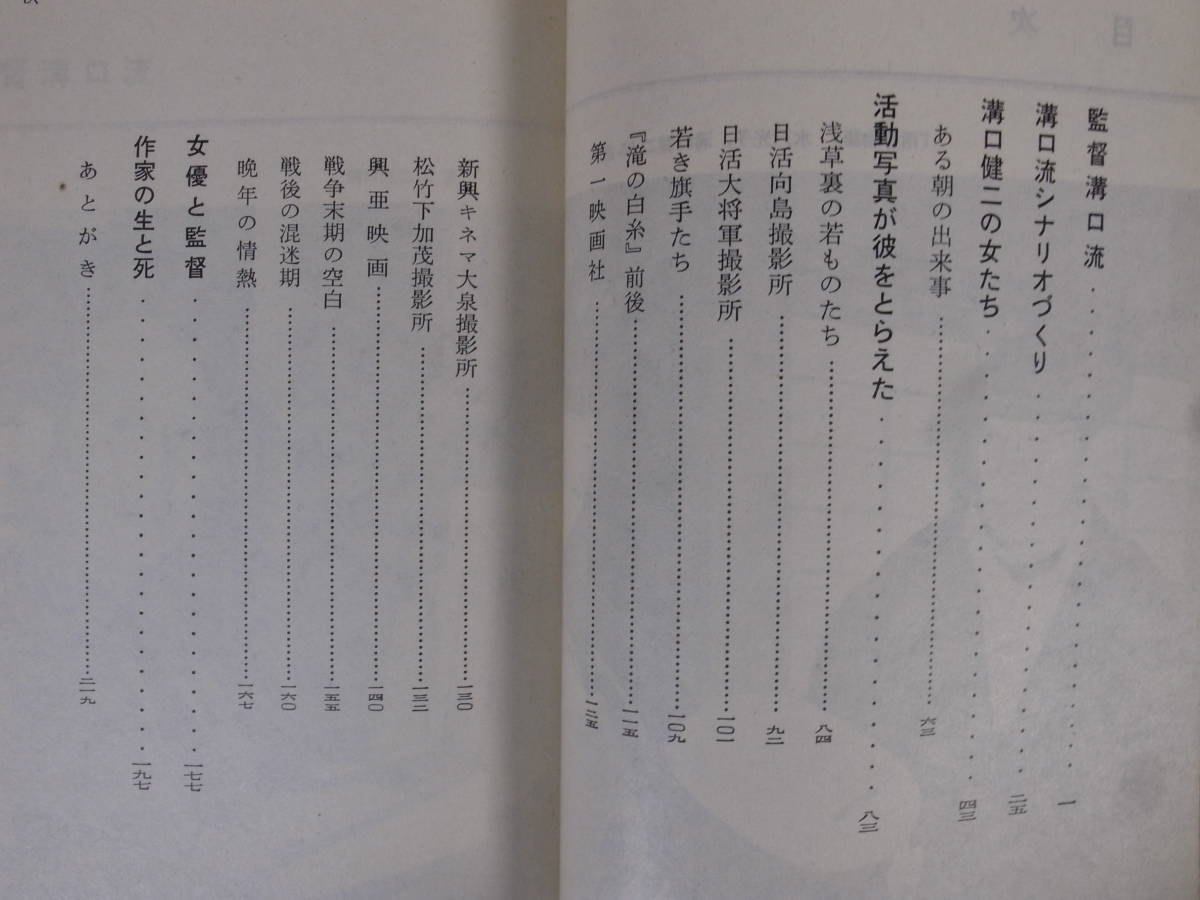 目次
監督溝口流 一
溝口流シナリオづくり 二五
溝口健二の女たち 四三
ある朝の出来事 六三
活動写真が彼をとらえた 八三
浅草裏の若ものたち 八四
日活向島撮影所 九二
日活大将軍撮影所 一〇一
若き旗手たち 一〇九
『滝の白糸』前後 一一五
第一映画社 一二五
新興キネマ大泉撮影所 一三〇
松竹下加茂撮影所 一三二
興亜映画 一四〇
戦争末期の空白 一五五
戦後の混迷期 一六〇
晩年の情熱 一六七
女優と監督 一七七
作家の生と死 一九七
あとがき 二一九